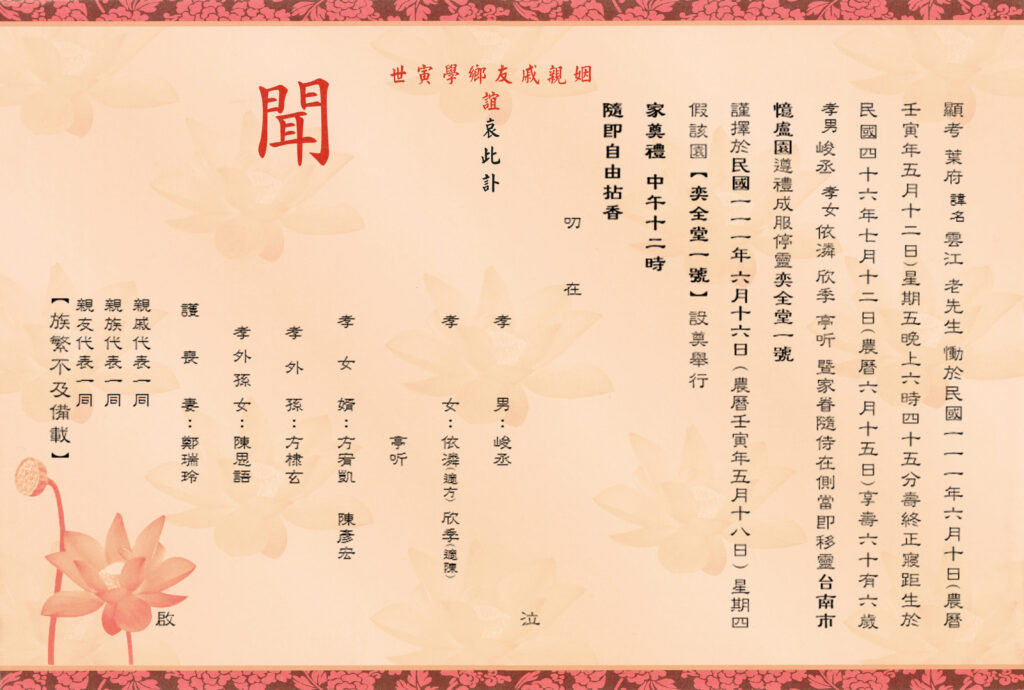 顯考 葉府 諱名 雲江 老先生 慟於民國一一一年六月十日(農曆
壬寅年五月十二日)星期五晚上六時四十五分壽終正寢距生於
民國四十六年七月十二日(農曆六月十五日)享壽六十有六歲
孝男 峻丞 孝女 依潾 欣季 亭听 暨家眷隨侍在側當即移靈台南市
憶盧園遵禮成服停靈奕全堂一號
謹擇於民國一一一年六月十六日(農曆壬寅年五月十八日)星期四
假該園【奕全堂一號】設奠舉行
家奠禮 中午十二時
隨即自由拈香
叨在
世寅學鄉友戚親姻
誼哀此訃
聞
孝男:峻丞
孝女:依潾(適方) 欣季(適陳)
亭听
孝女婿:方宥凱 陳彥宏
孝外孫:方棣玄
孝外孫女:陳思語
護喪妻:鄭瑞玲
泣
啟
親戚代表一同
親族代表一同
親友代表一同
【族繁不及備載】